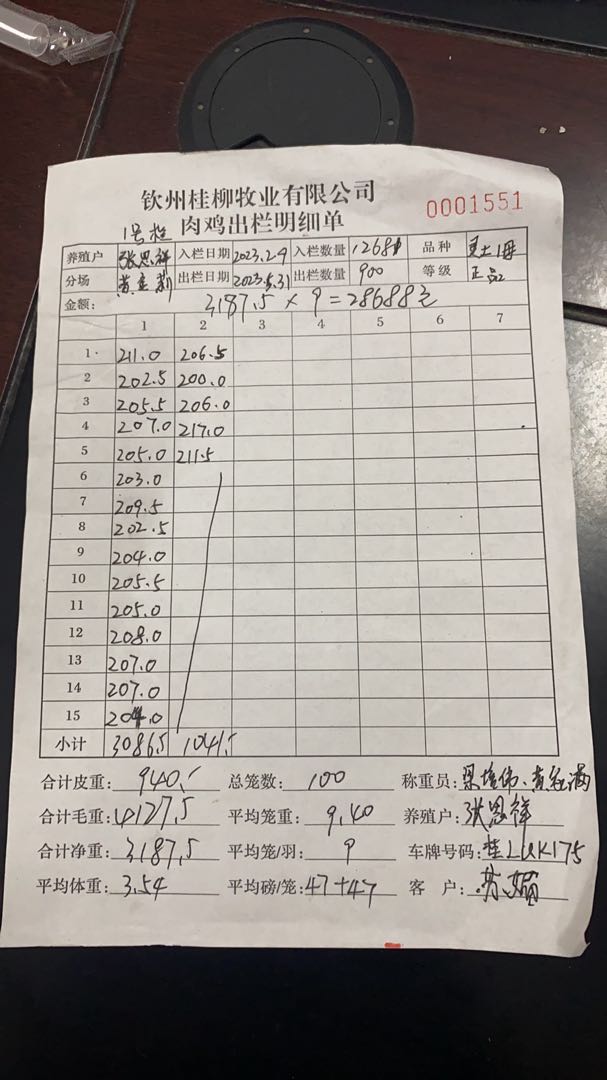 钦州桂柳牧业有限公司
肉鸡出栏明细单
0001551
1号栏
养殖户 张思祥 入栏日期 2023.2.9 入栏数量 1268 品种 土1母
分场 黄 入栏日期 出栏日期 2023.5.31 出栏数量 900 等级 正品
金额: 3187.5 × 9 = 28688元
1 2 3 4 5 6 7
1 211.0 206.5
2 202.5 200.0
3 205.5 206.0
4 207.0 217.0
5 205.0 211.5
6 203.0
7 209.5
8 202.5
9 204.0
10 205.5
11 205.0
12 208.0
13 207.0
14 207.0
15 204.0
小计 3086.5 1041.5
合计皮重: 940.5 总笼数: 100 称重员:
合计毛重: 4127.5 平均笼重: 9.40 养殖户: 张思祥
合计净重: 3187.5 平均笼/羽: 9 车牌号码: 桂LUK175
平均体重: 3.54 平均磅/笼: 47+47 客户: